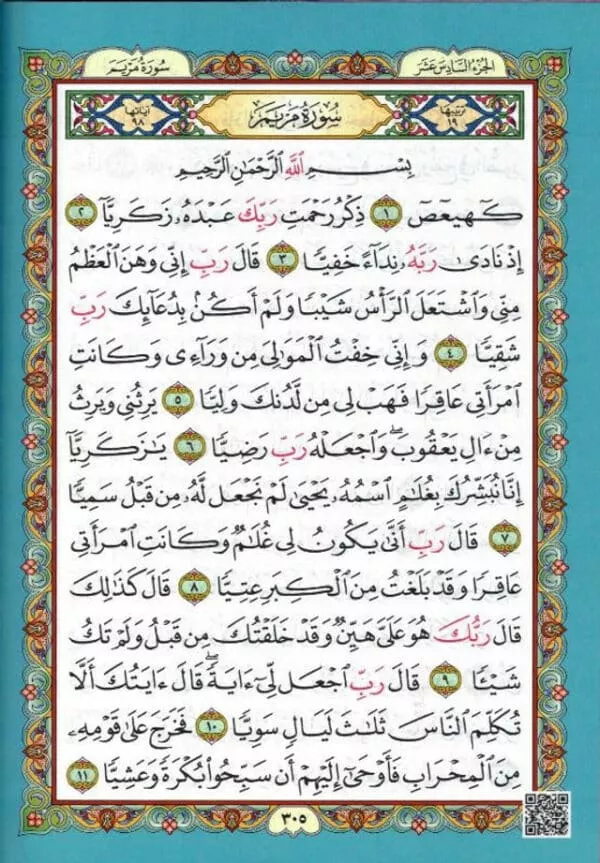 سُورَةُ مَرْيَمَ
الجُزْءُ السَّادِسَ عَشَرَ
تَرْتِيبُهَا ١٩
سُورَةُ مَرْيَم
آيَاتُهَا ٩٨
بِسْمِ ٱللَّهِ ٱلرَّحْمَٰنِ ٱلرَّحِيمِ
كٓهيعٓصٓ ١ ذِكْرُ رَحْمَتِ رَبِّكَ عَبْدَهُۥ زَكَرِيَّآ ٢
إِذْ نَادَىٰ رَبَّهُۥ نِدَآءً خَفِيًّا ٣ قَالَ رَبِّ إِنِّى وَهَنَ ٱلْعَظْمُ
مِنِّى وَٱشْتَعَلَ ٱلرَّأْسُ شَيْبًا وَلَمْ أَكُنۢ بِدُعَآئِكَ رَبِّ
شَقِيًّا ٤ وَإِنِّى خِفْتُ ٱلْمَوَٰلِىَ مِن وَرَآءِى وَكَانَتِ
ٱمْرَأَتِى عَاقِرًا فَهَبْ لِى مِن لَّدُنكَ وَلِيًّا ٥ يَرِثُنِى وَيَرِثُ
مِنْ ءَالِ يَعْقُوبَ ۖ وَٱجْعَلْهُ رَبِّ رَضِيًّا ٦ يَٰزَكَرِيَّآ
إِنَّا نُبَشِّرُكَ بِغُلَٰمٍ ٱسْمُهُۥ يَحْيَىٰ لَمْ نَجْعَل لَّهُۥ مِن قَبْلُ سَمِيًّا
٧ قَالَ رَبِّ أَنَّىٰ يَكُونُ لِى غُلَٰمٌ وَكَانَتِ ٱمْرَأَتِى
عَاقِرًا وَقَدْ بَلَغْتُ مِنَ ٱلْكِبَرِ عِتِيًّا ٨ قَالَ كَذَٰلِكَ
قَالَ رَبُّكَ هُوَ عَلَىَّ هَيِّنٌ وَقَدْ خَلَقْتُكَ مِن قَبْلُ وَلَمْ تَكُ
شَيْـًٔا ٩ قَالَ رَبِّ ٱجْعَل لِّىٓ ءَايَةً ۚ قَالَ ءَايَتُكَ أَلَّا
تُكَلِّمَ ٱلنَّاسَ ثَلَٰثَ لَيَالٍ سَوِيًّا ١٠ فَخَرَجَ عَلَىٰ قَوْمِهِۦ
مِنَ ٱلْمِحْرَابِ فَأَوْحَىٰٓ إِلَيْهِمْ أَن سَبِّحُوا۟ بُكْرَةً وَعَشِيًّا ١١
٣٠٥